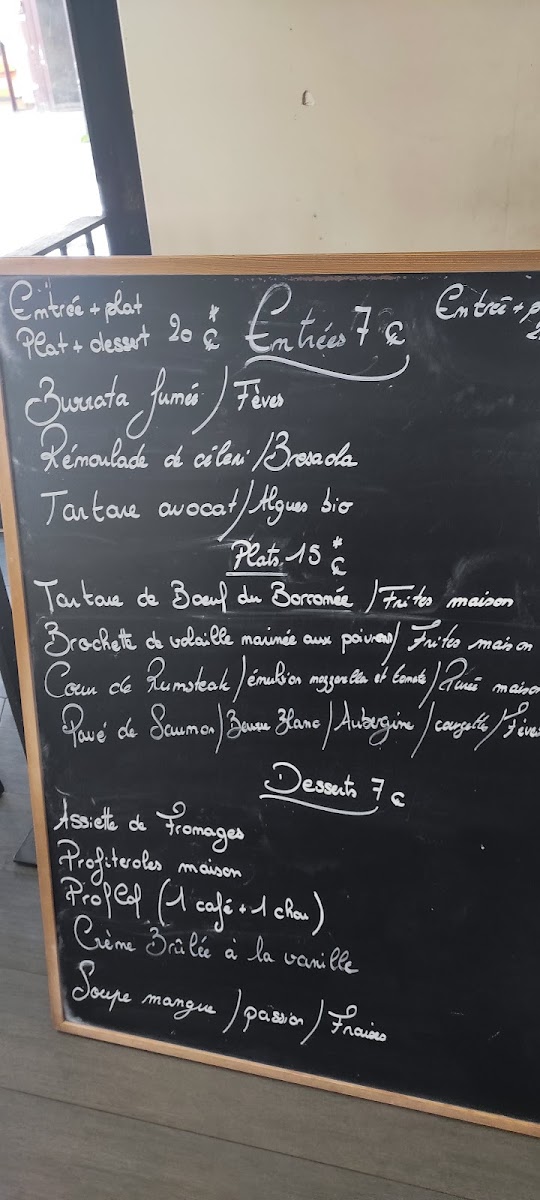 Entrée + plat
Plat + dessert 20 €*
Entrées 7 €
Entrée + p
Burrata fumé / Fèves
Rémoulade de céleri / Bresaola
Tartare avocat / Algues bio
Plats 15 €*
Tartare de Boeuf du Borromée / Frites maison
Brochette de volaille marinée aux poivres / Frites maison
Coeur de Rumsteak / émulsion mozzarella et tomate / Purée maison
Pavé de Saumon / Beurre Blanc / Aubergine / courgette / Fèves
Desserts 7 €
Assiette de Fromages
Profiteroles maison
Prof Cof (1 café + 1 chou)
Crème Brûlée à la vanille
Soupe mangue / passion / Fraises